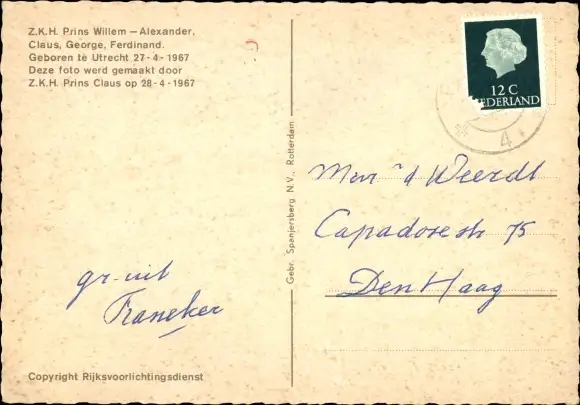 Z.K.H. Prins Willem — Alexander,
Claus, George, Ferdinand.
Geboren te Utrecht 27 - 4 - 1967
Deze foto werd gemaakt door
Z.K.H. Prins Claus op 28 - 4 - 1967
12 C
NEDERLAND
4
Gebr. Spanjersberg N.V., Rotterdam
'd Weerdt
Capadosestr 75
Den Haag
gr. uit
Franeker
Copyright Rijksvoorlichtingsdienst